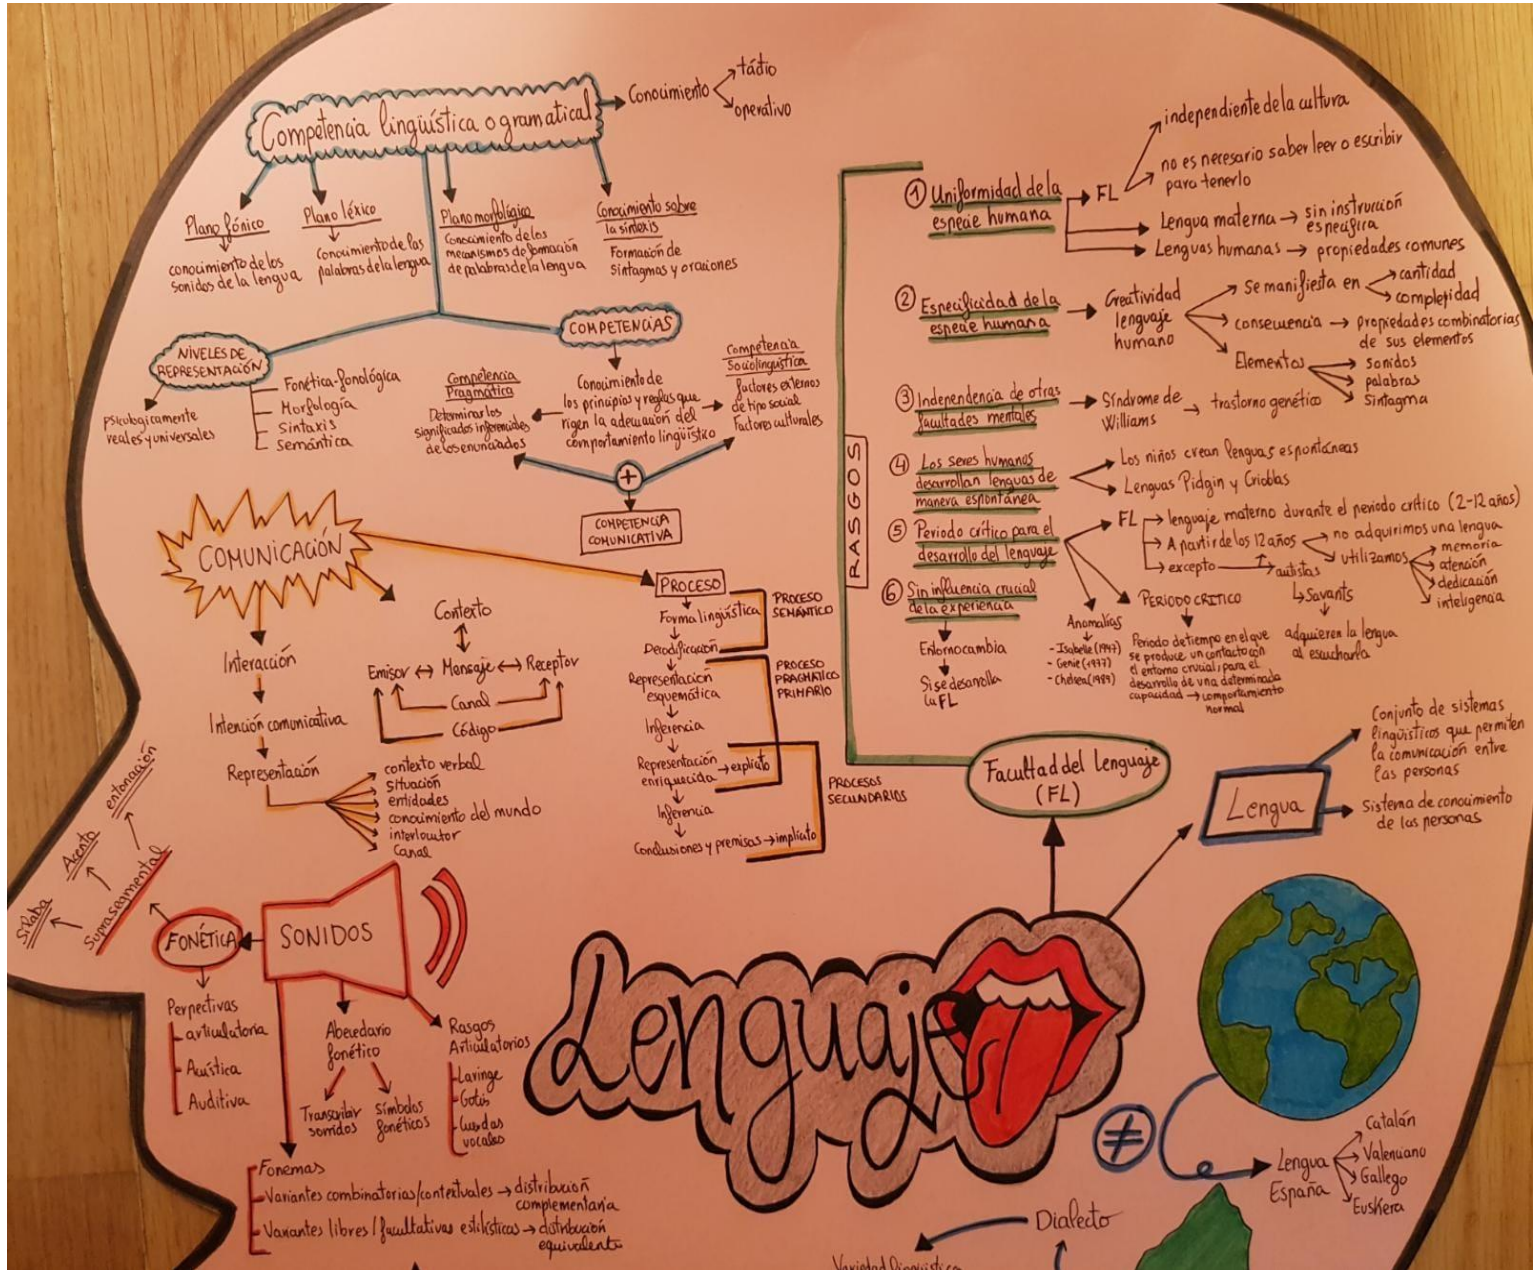 Competencia lingüística o gramatical
Conocimiento
tácito
operativo
Plano fónico
conocimiento de los
sonidos de la lengua
Plano léxico
Conocimiento de las
palabras de la lengua
Plano morfológico
Conocimiento de los
mecanismos de formación
de palabras de la lengua
Conocimiento sobre
la sintexis
Formación de
sintagmas y oraciones
NIVELES DE
REPRESENTACIÓN
psicologicamente
reales y universales
Fonética-fonológica
Morfología
Sintaxis
Semántica
COMPETENCIAS
Conocimiento de
los principios y reglas que
rigen la adecuación del
comportamiento lingüístico
Competencia
Pragmática
Determinar los
significados inferenciales
de los enunciados
Competencia
Sociolinguística
factores externos
de tipo social
Factores culturales
+
COMPETENCIA
COMUNICATIVA
COMUNICACIÓN
Interacción
Intención comunicativa
Representación
contexto verbal
situación
entidades
conocimiento del mundo
interlocutor
Canal
Contexto
Emisor ↔ Mensaje ↔ Receptor
Canal
Código
PROCESO
Forma lingüística
Decodificación
Representación
esquemática
Inferencia
Representación
enriquecida → explícito
Inferencia
Conclusiones y premisas → implícito
PROCESO
SEMÁNTICO
PROCESO
PRAGMÁTICO
PRIMARIO
PROCESOS
SECUNDARIOS
RASGOS
① Uniformidad de la
especie humana
FL
independiente de la cultura
no es necesario saber leer o escribir
para tenerlo
Lengua materna → sin instrucción
específica
Lenguas humanas → propiedades comunes
② Especificidad de la
especie humana
Creatividad
lenguaje
humano
se manifiesta en
cantidad
complejidad
consecuencia → propiedades combinatorias
de sus elementos
Elementos
sonidos
palabras
Sintagma
③ Independencia de otras
facultades mentales
Síndrome de
Williams
→ trastorno genético
④ Los seres humanos
desarrollan lenguas de
manera espontánea
Los niños crean lenguas espontáneas
Lenguas Pidgin y Criollas
⑤ Periodo crítico para el
desarrollo del lenguaje
FL
lenguaje materno durante el periodo crítico (2-12 años)
A partir de los 12 años
no adquirimos una lengua
utilizamos
memoria
atención
dedicación
inteligencia
excepto
autistas
Savants
adquieren la lengua
al escucharla
Anomalías
- Isabelle (1947)
- Genie (1977)
- Chelsea (1989)
PERIODO CRITICO
Periodo de tiempo en el que
se produce un contacto con
el entorno crucial, para el
desarrollo de una determinada
capacidad → comportamiento
normal
⑥ Sin influencia crucial
de la experiencia
Entorno cambia
Si se desarolla
la FL
Facultad del lenguaje
(FL)
Lengua
Conjunto de sistemas
lingüísticos que permiten
la comunicación entre
las personas
Sistema de conocimiento
de las personas
entonación
Acento
Sílaba
Suprasegmental
FONÉTICA
SONIDOS
Perpectivas
articulatoria
Acústica
Auditiva
Abecedario
fonético
Transcribir
sonidos
Símbolos
fonéticos
Rasgos
Articulatorios
Laringe
Gotis
Cuerdas
vocales
Fonemas
Variantes combinatorias/contextuales → distribución
complementaria
Variantes libres/facultativas estilísticas → distribución
equivalente
Lenguaje
≠
Lengua
España
Catalán
Valenciano
Gallego
Euskera
Dialecto
Variedad lingüística